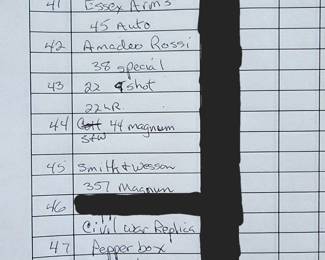 41 Essex Arms
45 Auto
42 Amadeo Rossi
38 special
43 22 9 shot
22 LR
44 Colt 44 magnum
S&W
45 Smith & Wesson
357 Magnum
46
Civil War Replica
47 Pepper box